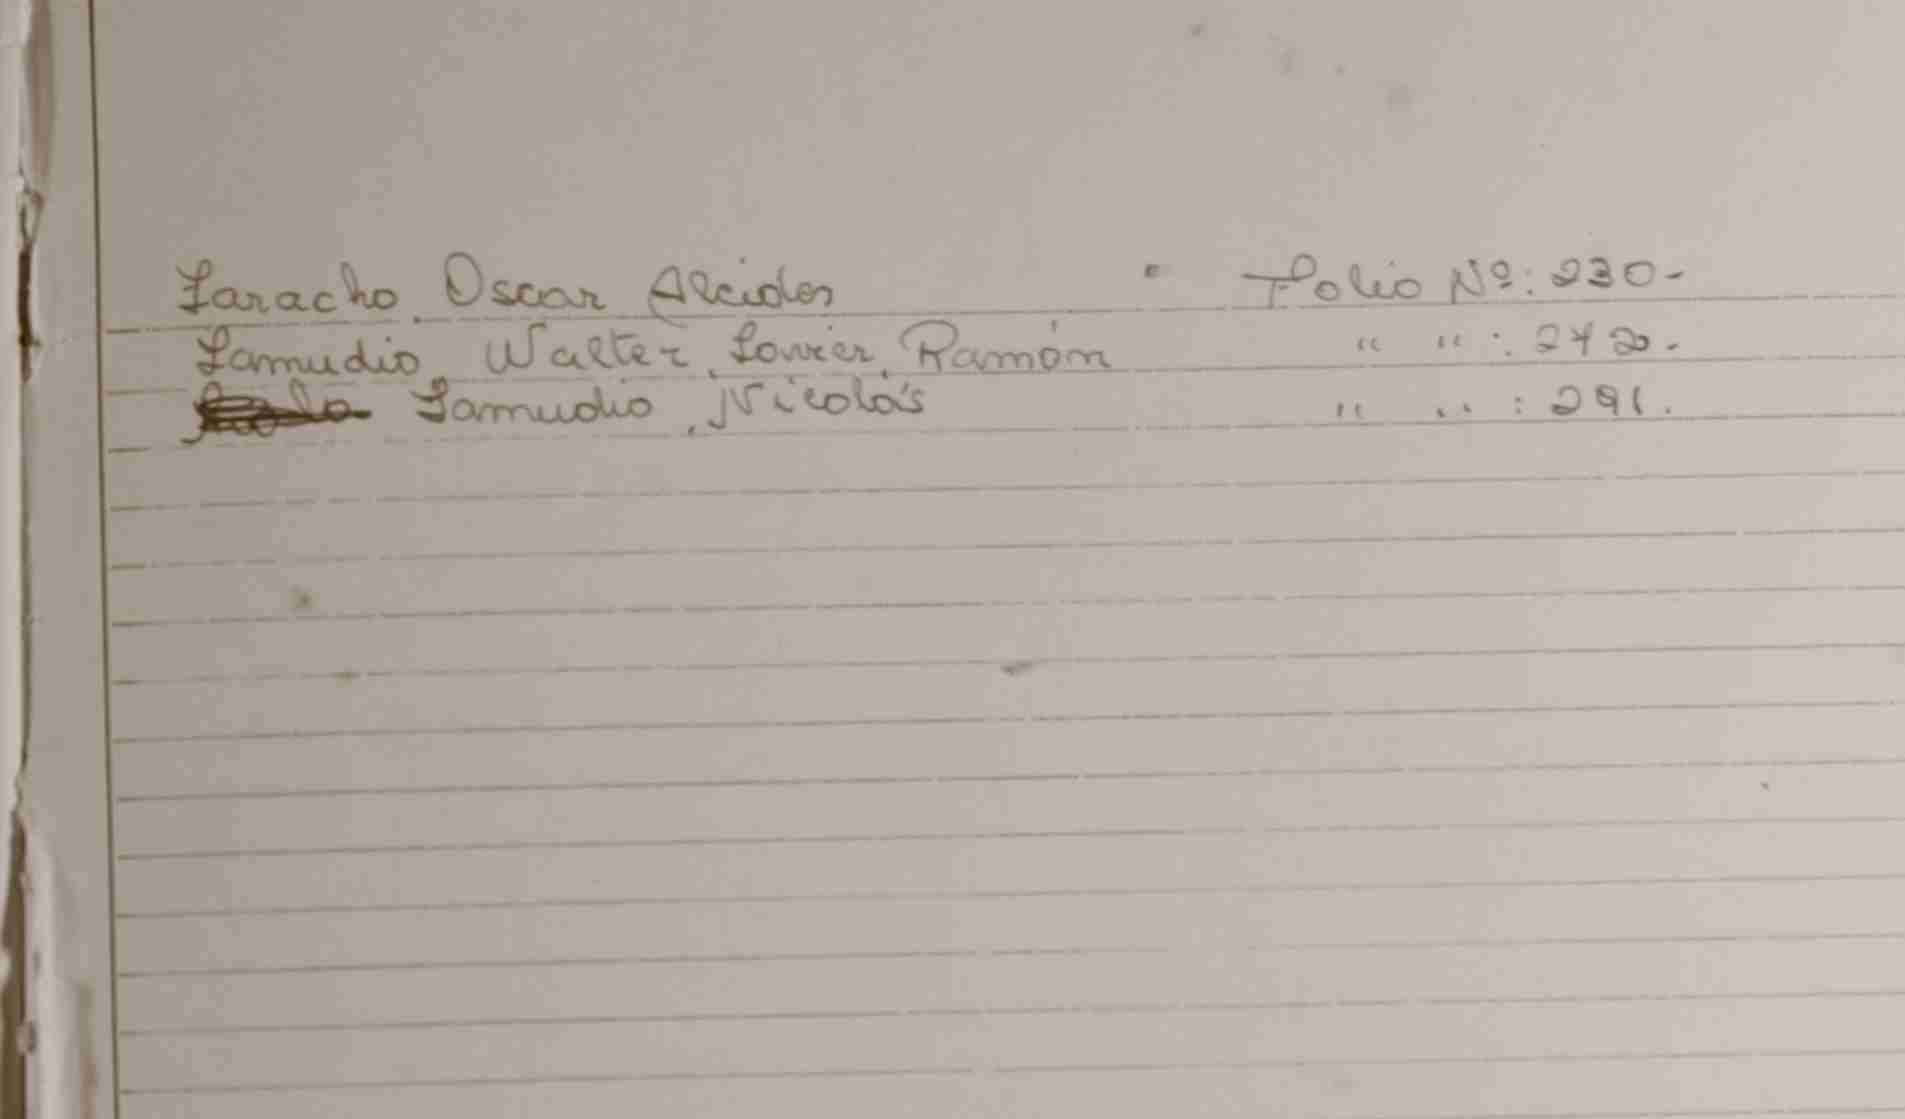 Zaracho, Oscar Alcides " Folio Nº: 230-
Zamudio, Walter, Ramón " " : 242.
Zamudio, Nicolás " " : 291.